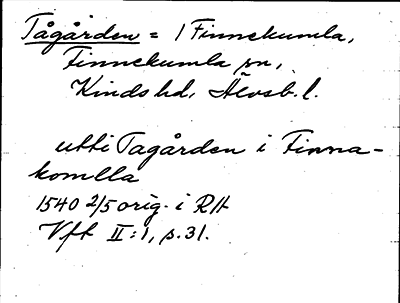 Tågården = / Finnekumla,
Finnekumla sn,
Kinds hd, Älvsb. l.
utti Tagården i Finna-
komlla
1540 2/5 orig. i RA
Vft II:1, s. 31.